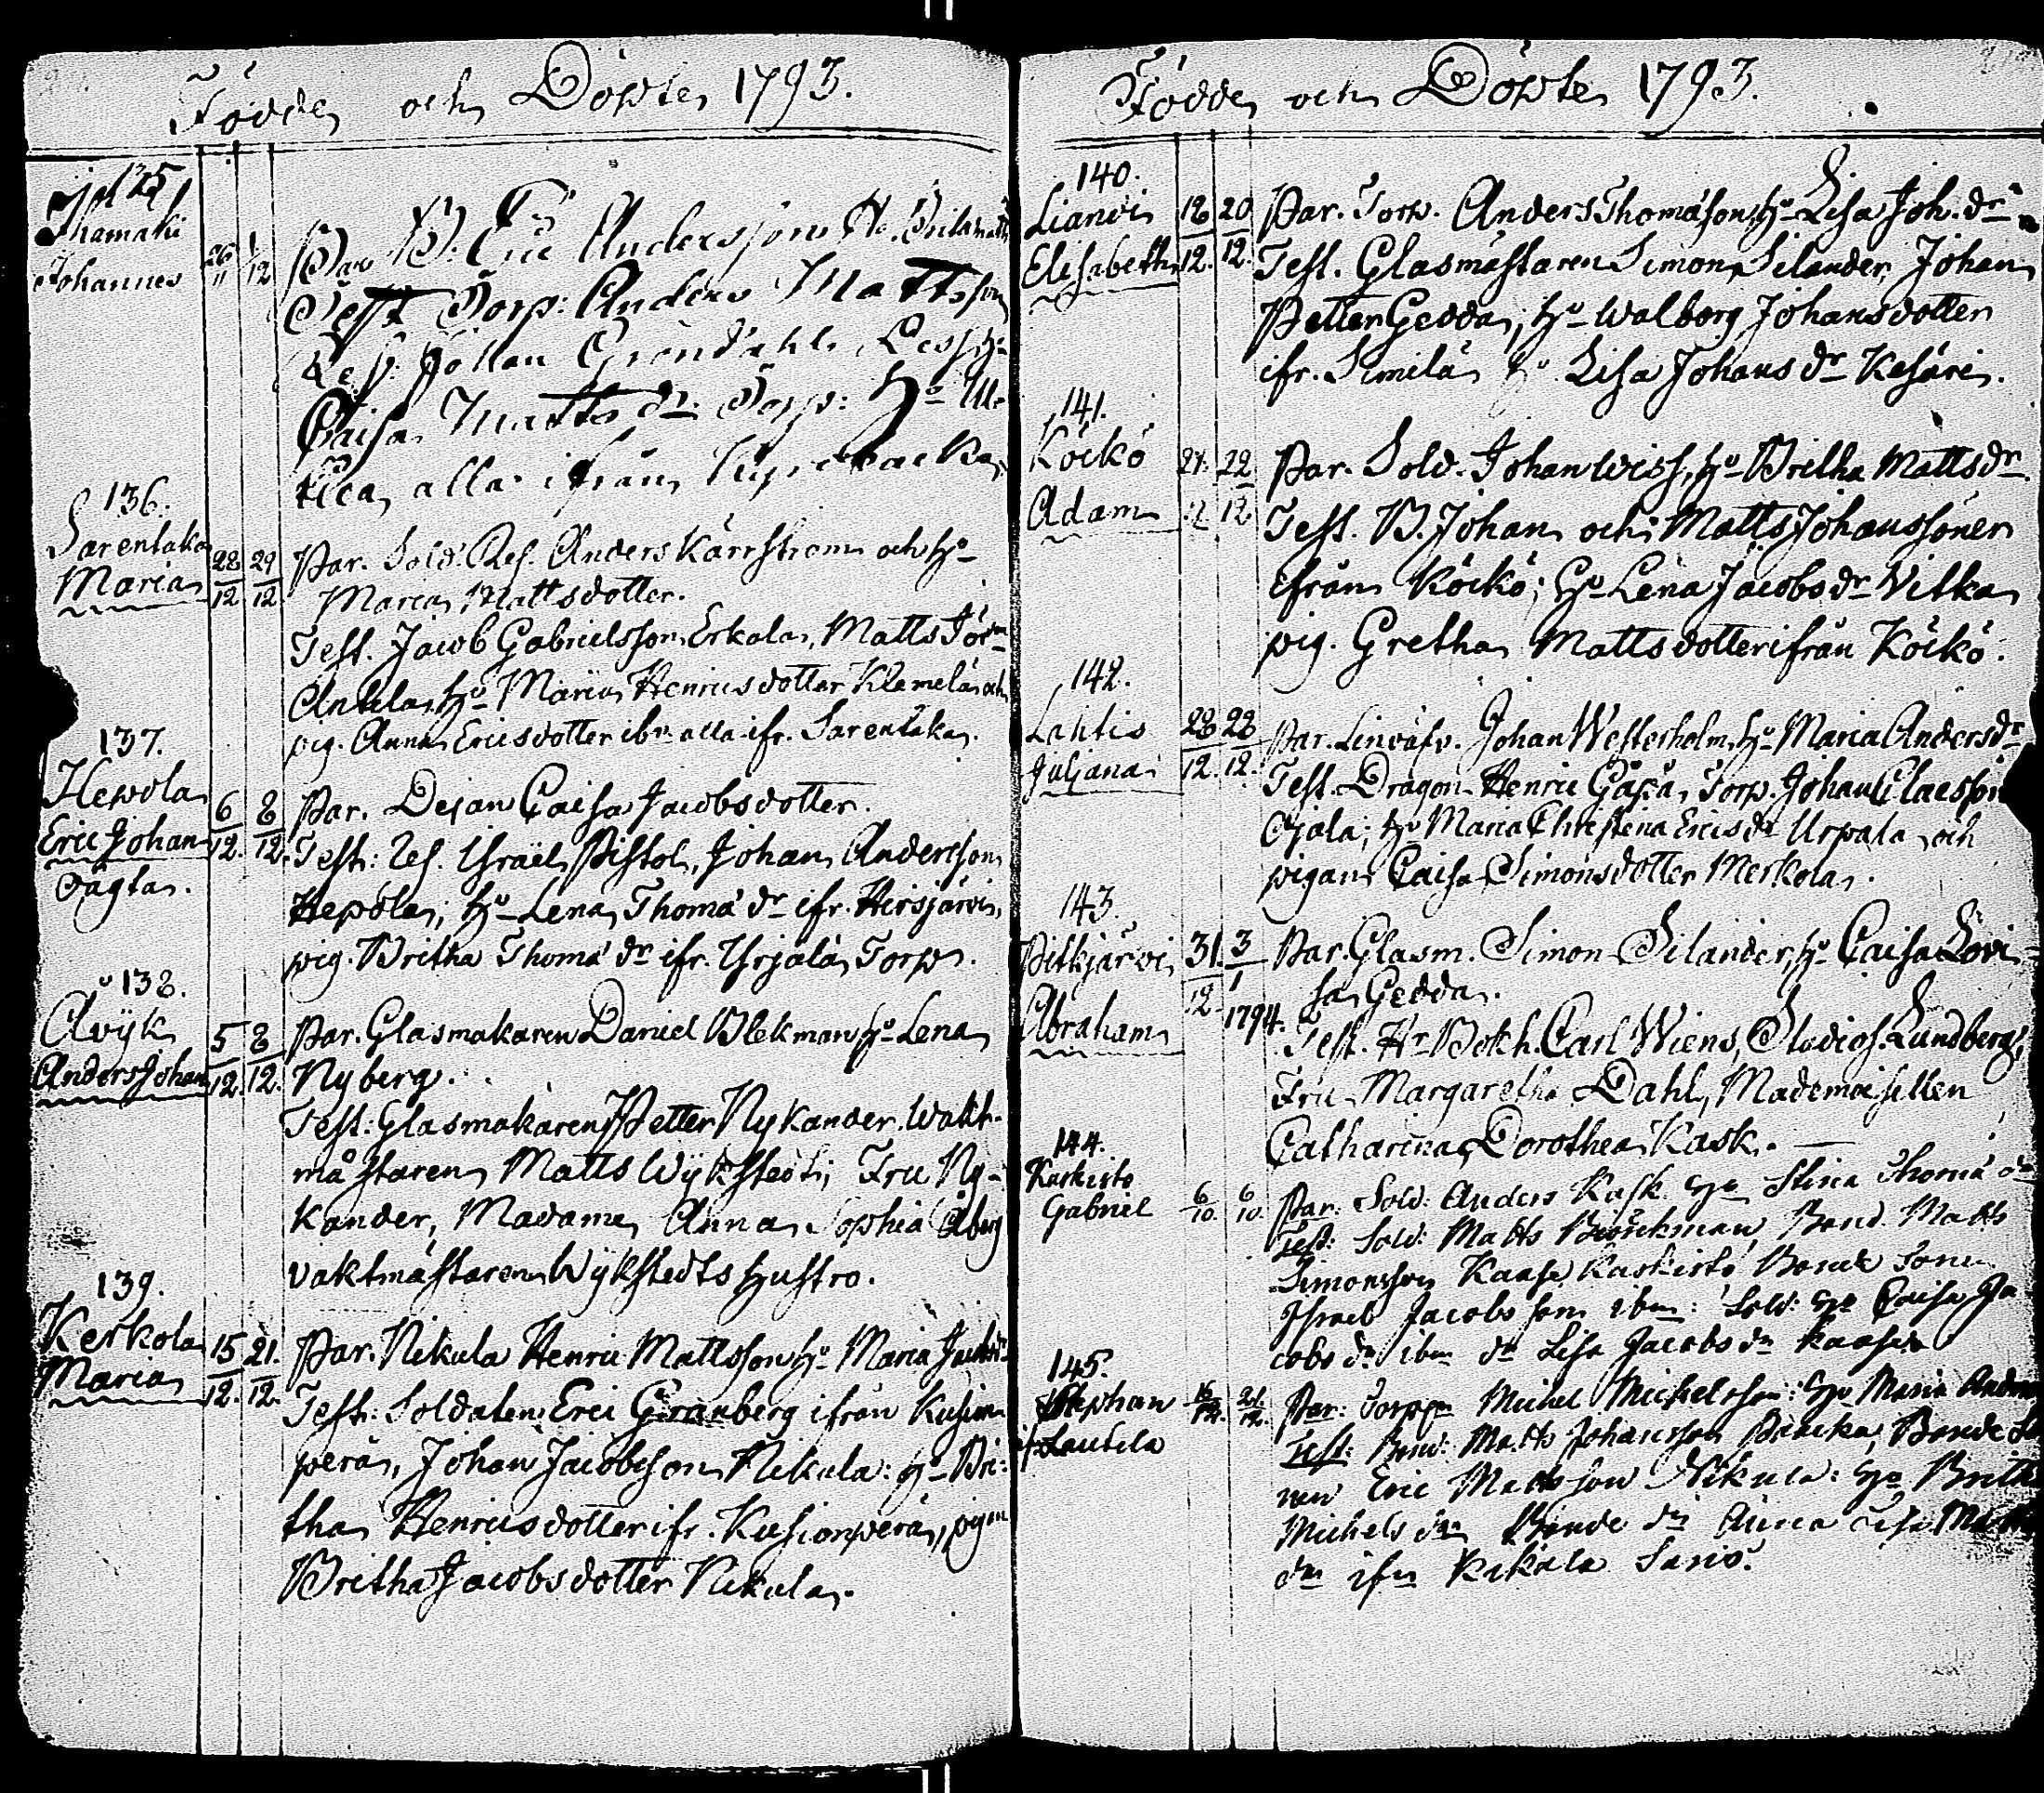 Födde och Döpte 1793.
135
Johannes 26/11 1/12
Par B: Eric Andersson H. Brita
Test Torp: Anders Mattsson
Johan Gröndahl
Caisa Matts dr. Torp: Ho
alla ifrån
136.
Sarentaka
Maria 28/12 29/12
Par. Sold. Res. Anders Kärrström och Ho
Maria Mattsdotter.
Test. Jacob Gabrielsson Erkola, Matts
Anttila, Ho Maria Henricsdotter Klemelä och
pig. Anna Ericsdotter ibm alla ifr. Sarentaka.
137.
Hepola
Eric Johan 6/12. 8/12.
oägta.
Par. Dejan Caisa Jacobsdotter.
Test: Res. Israël Pistol, Johan Andersson
Hepola; Ho Lena Thomæ dr ifr. Hirsjärvi,
pig. Britha Thomæ dr ifr. Urjala Torp.
138.
Åvijk
Anders Johan 5/12. 8/12.
Par. Glasmakaren Daniel Blekman Ho Lena
Nyberg.
Test: Glasmakaren Petter Nykander. Wakt-
mästaren Matts Wijkstedt; Fru Ny-
kander, Madame Anna Sophia Åberg
vaktmästaren Wijkstedts Hustro.
139.
Kerkola
Maria 15/12. 21./12.
Par. Nikula Henric Mattsson Ho Maria
Test: Soldaten Eric Granberg ifrån Kusion
perä, Johan Jacobsson Nikula: Ho Bri-
tha Henricsdotter ifr. Kusionperä, pign
Britha Jacobsdotter Nikula.
Födde och Döpte 1793.
140.
Lianvi
Elisabeth 18/12. 20/12.
Par. Torp. Anders Thomæson, Ho Lisa Joh. dr
Test. Glasmästaren Simon Silander, Johan
Petter Gedda; Ho Walborg Johansdotter
ifr. Similä Ho Lisa Johans dr Kesäri.
141.
Köikö
Adam 21/12 22/12
Par. Sold. Johan Wiss, Ho Britha Matts dr.
Test. B. Johan och Matts Johanssöner
ifrån Köikö; Ho Lena Jacobs dr Vitka
pig. Gretha Mattsdotter ifrån Köikö.
142.
Lahtis
Juljana 28/12. 28/12.
Par. Johan Westerholm, Ho Maria Anders dr
Test. Dragon Henric Gåpå, Torp. Johan Claesson
Ojala; Ho Maria Christena Erics dr Urpala och
pigan Caisa Simonsdotter Merkola.
143.
Pitkjärvi
Abraham 31./12 3/1 1794.
Par. Glasm. Simon Silander, Ho Caisa Lovi-
sa Gedda.
Test. Hr Bokh. Carl Wiens, Studios. Lundberg,
Fru Margaretha Dahl, Mademoisellen
Catharina Dorothea Kask.
144.
Kaskisto
Gabriel 6/10. 6/10.
Par: Sold: Anders Kask Ho Stina Thomæ dr
Test: Sold: Matts Björckman, Bond. Matts
Simonsson Kaase Kaskisto Bonde Sonen
Israel Jacobsson ibm: Sold: Ho Caisa Ja
cobs dr ibm dr Lisa Jacobs dr Kaase
145.
Stephan
Lautela 16/12. 21/12.
Par: Torppn Michel Michelsson: Ho Maria Anders
Test: Bond: Matts Johansson Backa, Bonde So
nen Eric Mattsson Nikula: Ho Britha
Michels dr Bonde dr Anna Lisa
dr ifrn Kikala